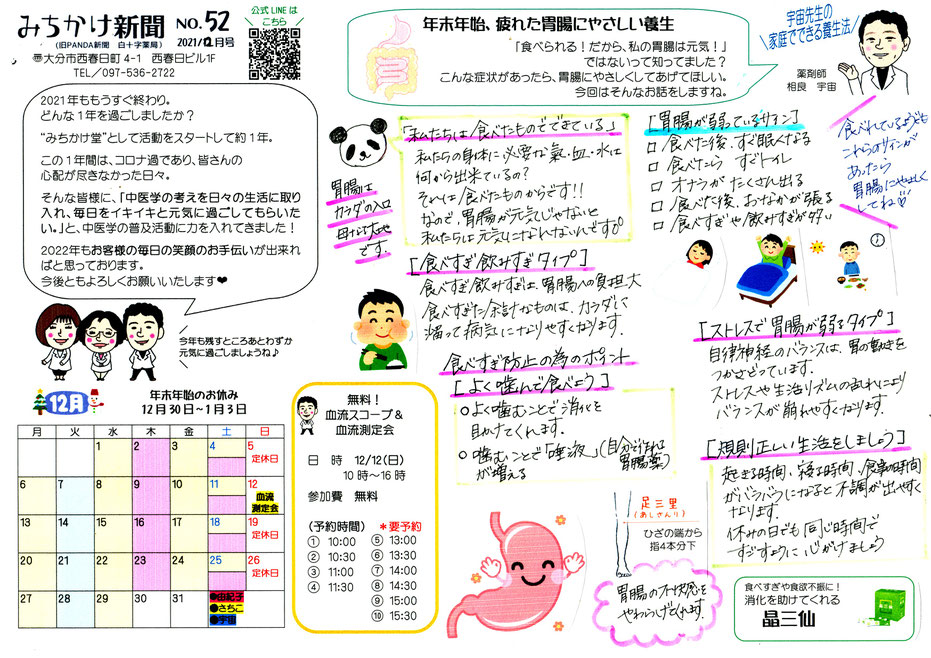 みちかけ新聞 NO.52
(旧PANDA新聞　白十字薬局) 2021/12月号
〠大分市西春日町4-1　西春日ビル1F
TEL／097-536-2722
公式LINEは
こちら
年末年始、疲れた胃腸にやさしい養生
「食べられる！だから、私の胃腸は元気！」
ではないって知ってました？
こんな症状があったら、胃腸にやさしくしてあげてほしい。
今回はそんなお話をしますね。
宇宙先生の
家庭でできる養生法
薬剤師
相良　宇宙
2021年ももうすぐ終わり。
どんな1年を過ごしましたか？
“みちかけ堂”として活動をスタートして約1年。
この1年間は、コロナ過であり、皆さんの
心配が尽きなかった日々。
そんな皆様に、「中医学の考えを日々の生活に取り
入れ、毎日をイキイキと元気に過ごしてもらいた
い。」と、中医学の普及活動に力を入れてきました！
2022年もお客様の毎日の笑顔のお手伝いが出来れ
ばと思っております。
今後ともよろしくお願いいたします❤
今年も残すところあとわずか
元気に過ごしましょうね♪
12月
年末年始のお休み
12月30日～1月3日
月 火 水 木 金 土 日
1 2 3 4 5
定休日
6 7 8 9 10 11 12
血流
測定会
13 14 15 16 17 18 19
定休日
20 21 22 23 24 25 26
定休日
27 28 29 30 31
●由紀子
●さちこ
●宇宙
無料！
血流スコープ＆
血流測定会
日　時　12/12(日)
10時～16時
参加費　無料
(予約時間) ＊要予約
① 10:00 ⑤ 13:00
② 10:30 ⑥ 13:30
③ 11:00 ⑦ 14:00
④ 11:30 ⑧ 14:30
⑨ 15:00
⑩ 15:30
胃腸は
カラダの入口
母なる大地
です。
「私たちは食べたものでできている」
私たちの身体に必要な氣・血・水は
何から出来ているの？
それは食べたものからです!!
なので、胃腸が元気じゃないと
私たちは元気になれないんです
[食べすぎ飲みすぎタイプ]
食べすぎ飲みすぎは、胃腸への負担大
食べすぎた余計なものは、カラダに
溜って病気になりやすくなります。
食べすぎ防止の為のポイント
[よく噛んで食べよう]
○よく噛むことで消化を
助けてくれます。
○噛むことで「唾液」(自分で作れる胃腸薬)
が増える
[胃腸が弱っているサイン]
□食べた後、すぐ眠くなる
□食べたら すぐトイレ
□オナラが たくさん出る
□食べた後、おなかが張る
□食べすぎや飲みすぎが多い
食べれているようでも
これらのサインが
あったら
胃腸にやさしく
してね♡
[ストレスで胃腸が弱るタイプ]
自律神経のバランスは、胃の動きを
つかさどっています。
ストレスや生活リズムのみだれにより
バランスが崩れやすくなります。
[規則正しい生活をしましょう]
起きる時間、寝る時間、食事の時間
がバラバラになると不調が出やすく
なります。
休みの日でも同じ時間で
すごすように心がけましょう
足三里
(あしさんり)
ひざの端から
指4本分下
胃腸の不快感を
やわらげてくれます。
食べすぎや食欲不振に！
消化を助けてくれる
晶三仙